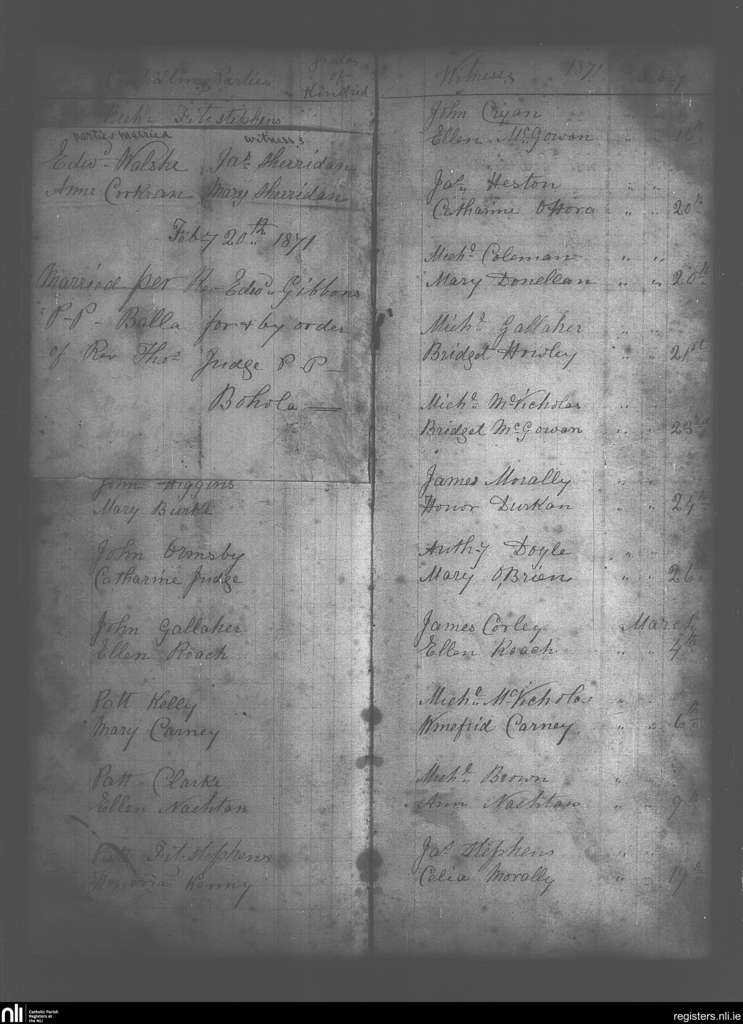 Contracting Parties
Grades
of
Kindred
Michl Fitzstephens
parties married witness's
Edwd Walshe Jas Sherridan
Anne Corkran Mary Sherridan
Feby 20th 1871
Married per Rev Edwd Gibbons
P-P- Balla for & by order
of Rev Thos Judge P P-
Bohola
John Higgins
Mary Burke
John Ormsby
Catharine Judge
John Gallaher
Ellen Roach
Patt Kelly
Mary Carney
Patt Clarke
Ellen Naghtan
Patt Fitstephens
Honoria Kenny
Witness 1871 Feby
John Cryan
Ellen McGowan " "
Jas Heston " "
Catharine OHora " " 20th
Michl Coleman " "
Mary Donellan " " 20th
Michl Gallaher " "
Bridget Howley " " 21st
Michl McNicholas "
Bridget McGowan " " 23rd
James Morally " "
Honor Durkan " " 24th
Anthy Doyle " "
Mary O'Brien " " 26
James Corley March
Ellen Roach " " 4th
Michl McNicholas " "
Winefrid Carney " " 6th
Michl Brown "
Ann Naghtan " " 9th
Jas Stephens " "
Celia Morally " " 19th
nli Catholic Parish
Registers at
the NLI
registers.nli.ie